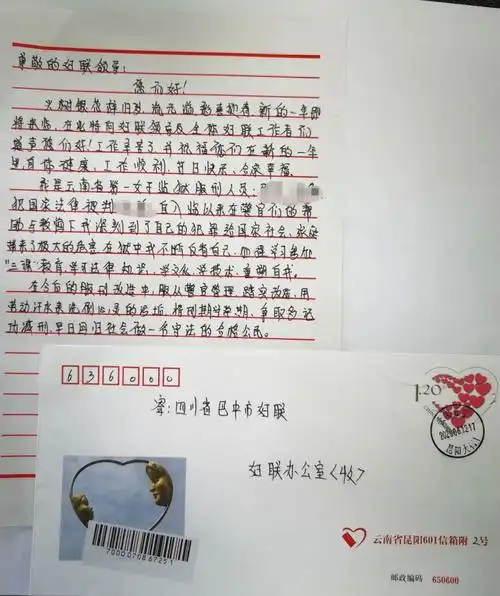 尊敬的妇联领导:
您们好!
火树银花辞旧岁, 新的一年即
将来临, 在此特向妇联领导及全体妇联工作者们
道声您们好!工作辛苦了, 并祝福您们在新的一年
里身体健康, 工作顺利, 节日快乐, 合家幸福。
我是云南省第一女子监狱服刑人员:
犯国家法律被判 入监以来在警官们的帮
助与教育下我深刻到了自己的犯罪给国家社会, 家庭
带来了极大的危害, 在狱中我不断反省自己, 学习参加
“三课”教育, 学习法律知识, 学文化, 学技术, 重塑自我。
在今后的服刑改造中, 服从警官管理, 踏实改造, 用
劳动汗水来洗刷心灵的污垢, 争取多记
功减刑, 早日回归社会做一名守法的合格公民。
636000
1.20
寄:四川省巴中市妇联
妇联办公室<收>
700007086725
云南省昆阳601信箱附 2号
邮政编码 650600